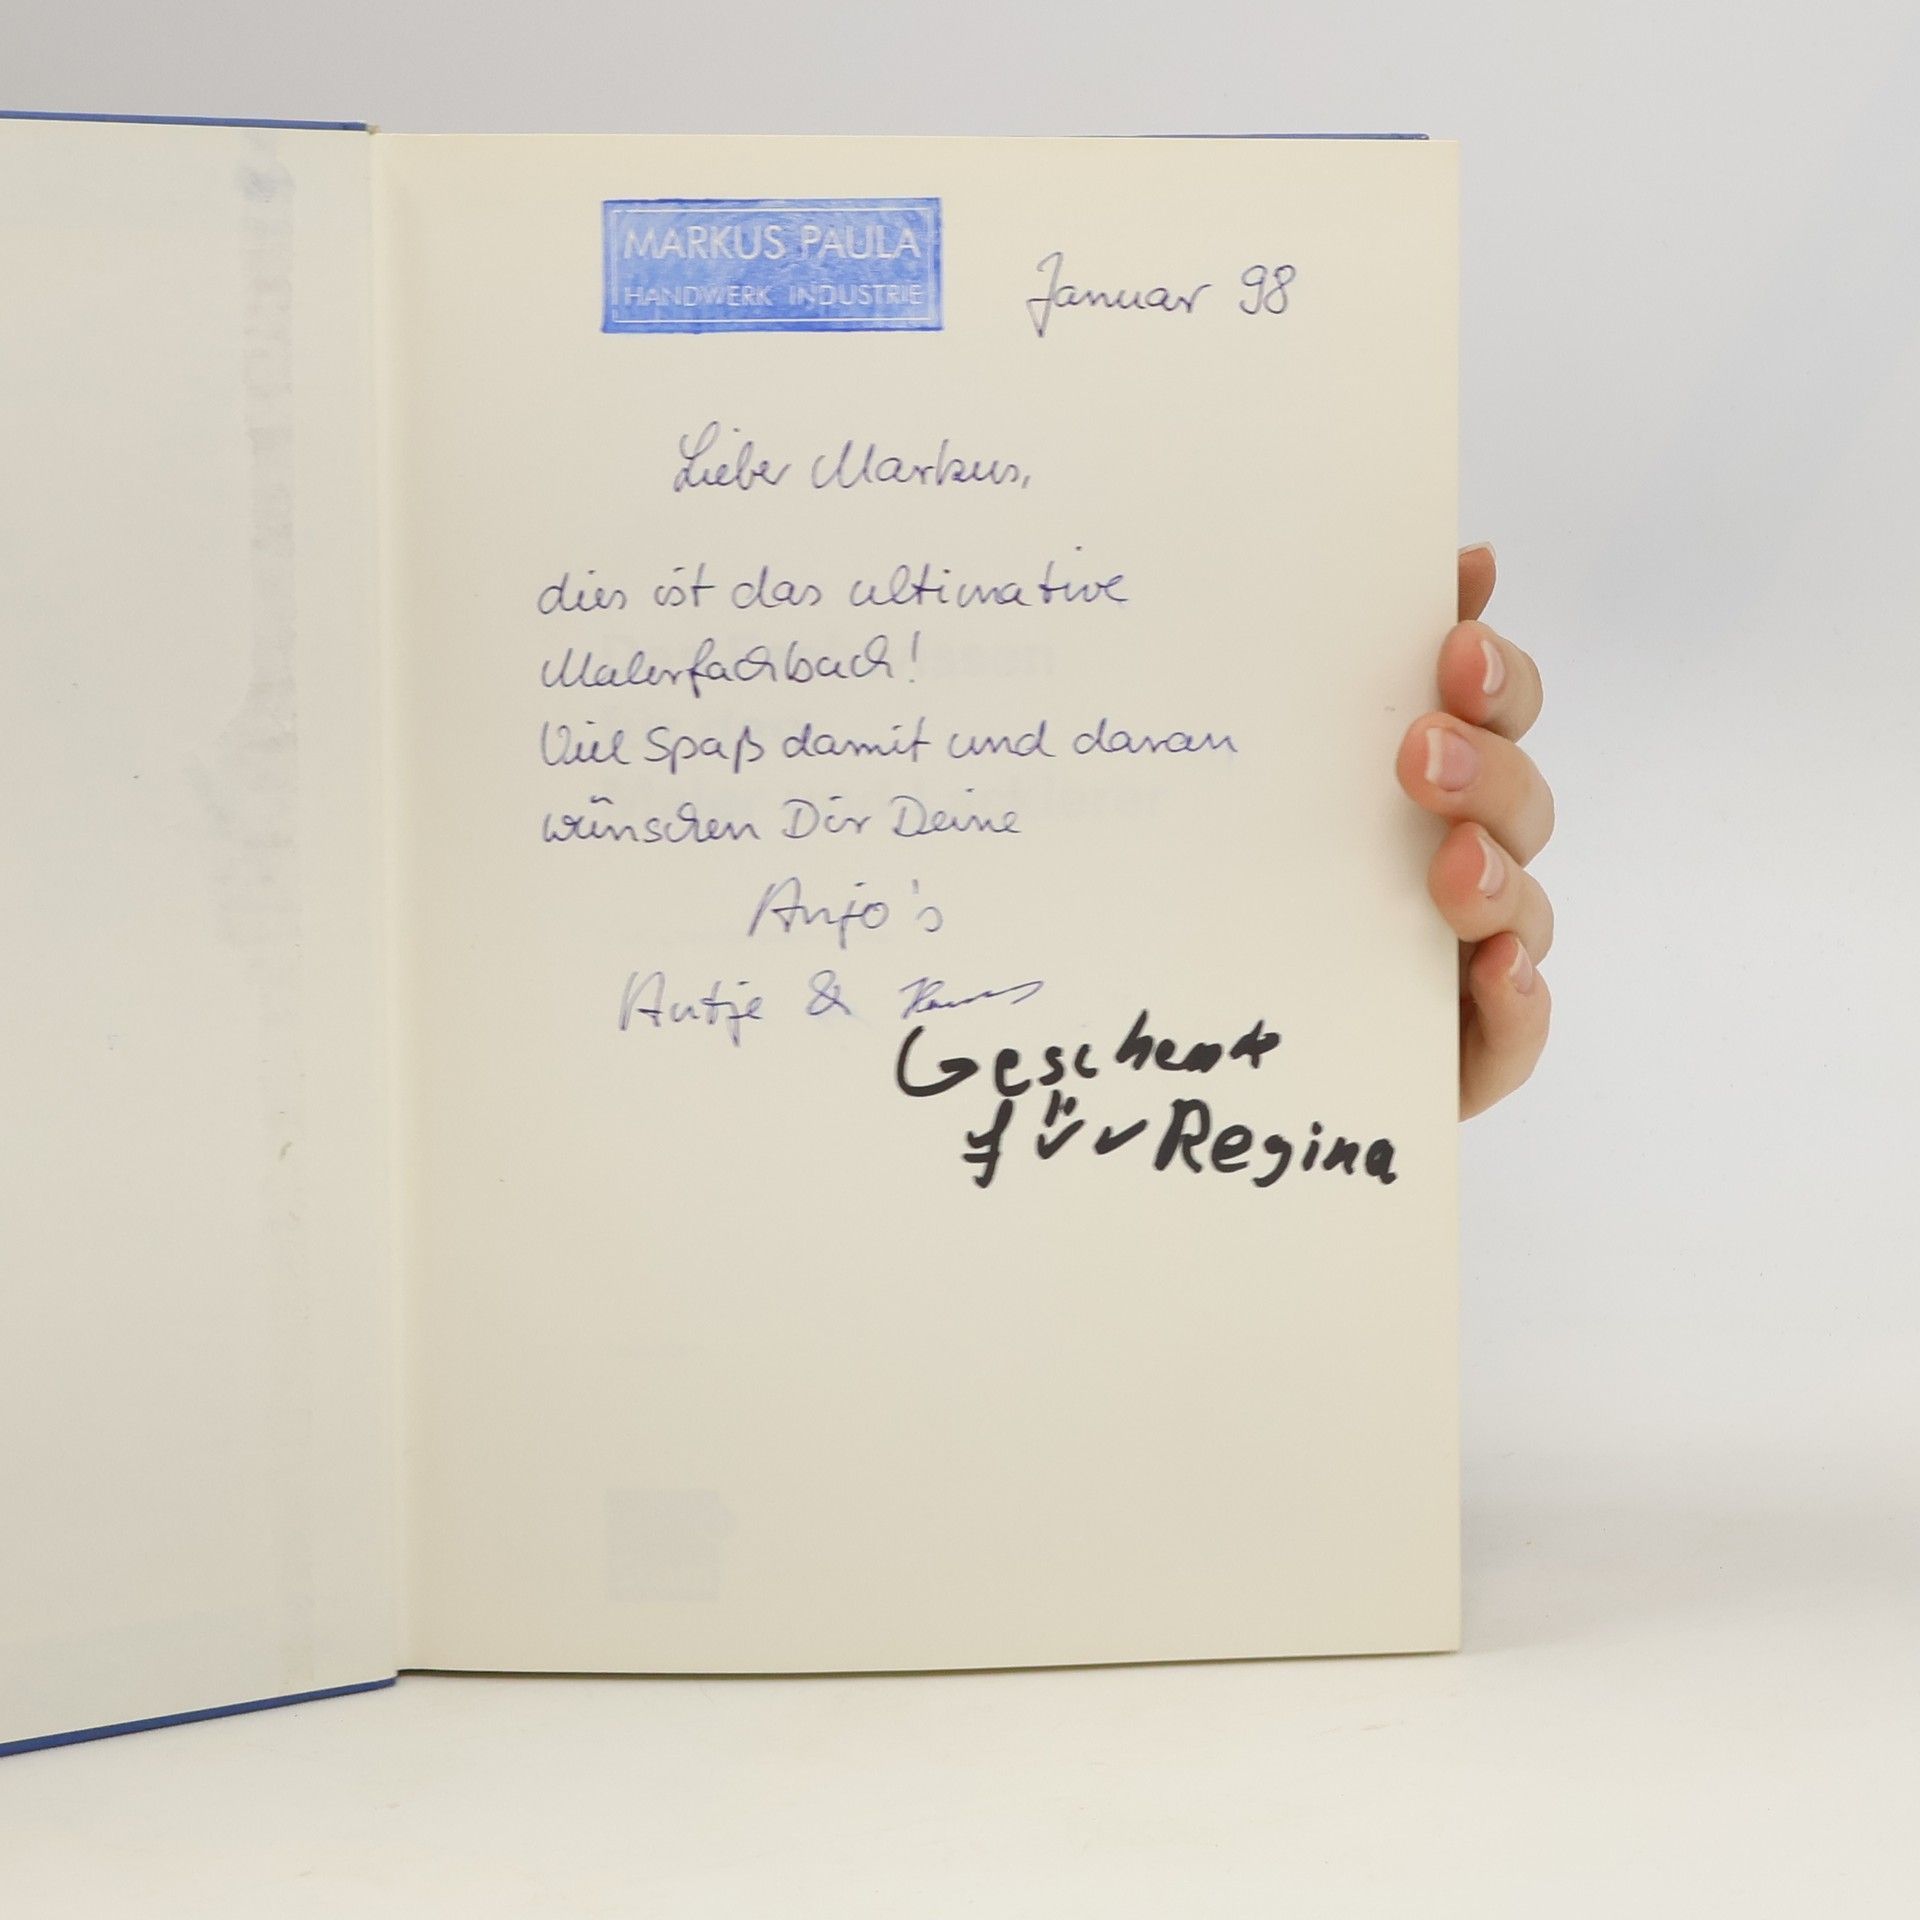 MARKUS PAULA
HANDWERK INDUSTRIE
Januar 98
Lieber Markus,
dies ist das ultimative
Malerfachbuch!
Viel Spaß damit und daran
wünschen Dir Deine
Anjo's
Antje &
Geschenk
für Regina